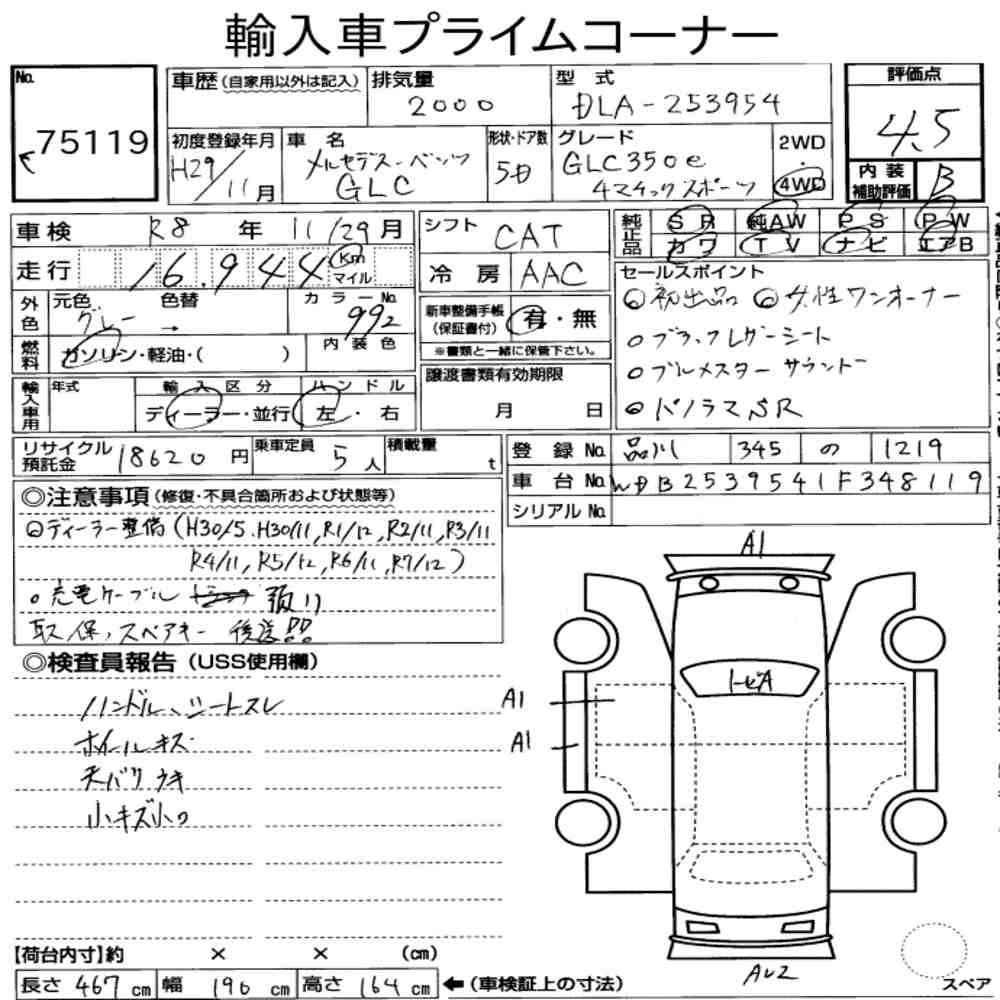 輸入車プライムコーナー
No. 75119
車歴 (自家用以外は記入)
排気量 2000
型式 DLA-253954
評価点 4.5
初度登録年月 H29/11月
車名 メルセデス-ベンツ GLC
形状・ドア数 5D
グレード GLC350e
4マチックスポーツ
2WD・4WD
内装補助評価 B
車検 R8年 11/29月
シフト CAT
純正品 SR 純AW PS PW
カワ TV ナビ エアB
走行 16,944 Km マイル
冷房 AAC
セールスポイント
◎初出品 ◎女性ワンオーナー
○ブラックレザーシート
○ブルメスターサウンド
◎パノラマSR
外色 元色 グレー → 色替
カラーNo. 992
新車整備手帳(保証書付) 有・無
※書類と一緒に保管下さい。
燃料 ガソリン・軽油・( )
内装色
輸入車用 年式
輸入区分 ディーラー・並行
ハンドル 左・右
譲渡書類有効期限
月 日
リサイクル預託金 18620円
乗車定員 5人
積載量 t
登録No. 品川 345 の 1219
車台No. WDB2539541F348119
シリアルNo.
◎注意事項(修復・不具合箇所および状態等)
◎ディーラー整備(H30/5.H30/11,R1/12,R2/11,R3/11
R4/11,R5/12,R6/11,R7/12)
○充電ケーブル 預り
取、保、スペアキー 後送!!
◎検査員報告(USS使用欄)
ハンドル、シートスレ
ホイールキズ
天バリウキ
小キズ小凹
A1
トビA
A1
A1
AU2
【荷台内寸】約 × × (cm)
長さ 467 cm 幅 190 cm 高さ 164 cm ←(車検証上の寸法)
スペア